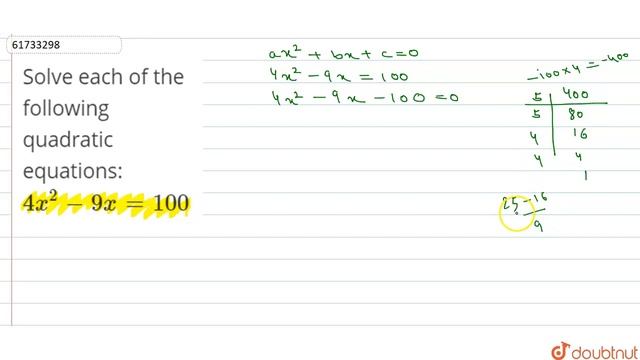 61733298
Solve each of the
following
quadratic
equations:
4x² − 9x = 100
ax² + bx + c = 0
4x² − 9x = 100
4x² − 9x − 100 = 0
−100 × 4 = −400
5 | 400
5 | 80
4 | 16
4 | 4
1
25 − 16
9
doubtnut